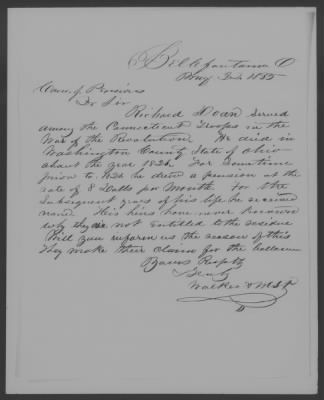 Bellefontaine O
Aug 1885
Com of Pensions
Dr Sir
Richard Doan served
among the Connecticut Troops in the
War of the Revolution. He died in
Washington County State of Ohio
about the year 1826. For sometime
prior to he drew a pension at the
rate of 8 Dolls per Month. For the
subsequent years of his life he received
none. His heirs have never known
why they are not entitled to the residue
Will you inform us the reason of this
They make their claim for the ballance
Yours Respfly
Walker &